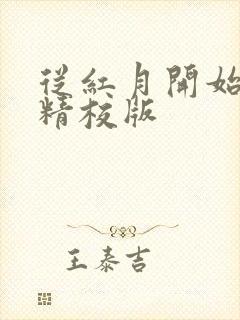 從紅月開始
精校版
王泰吉